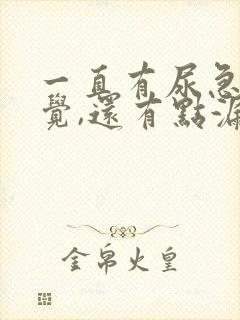 一直有尿急
覺,還有點漏
金帛火皇